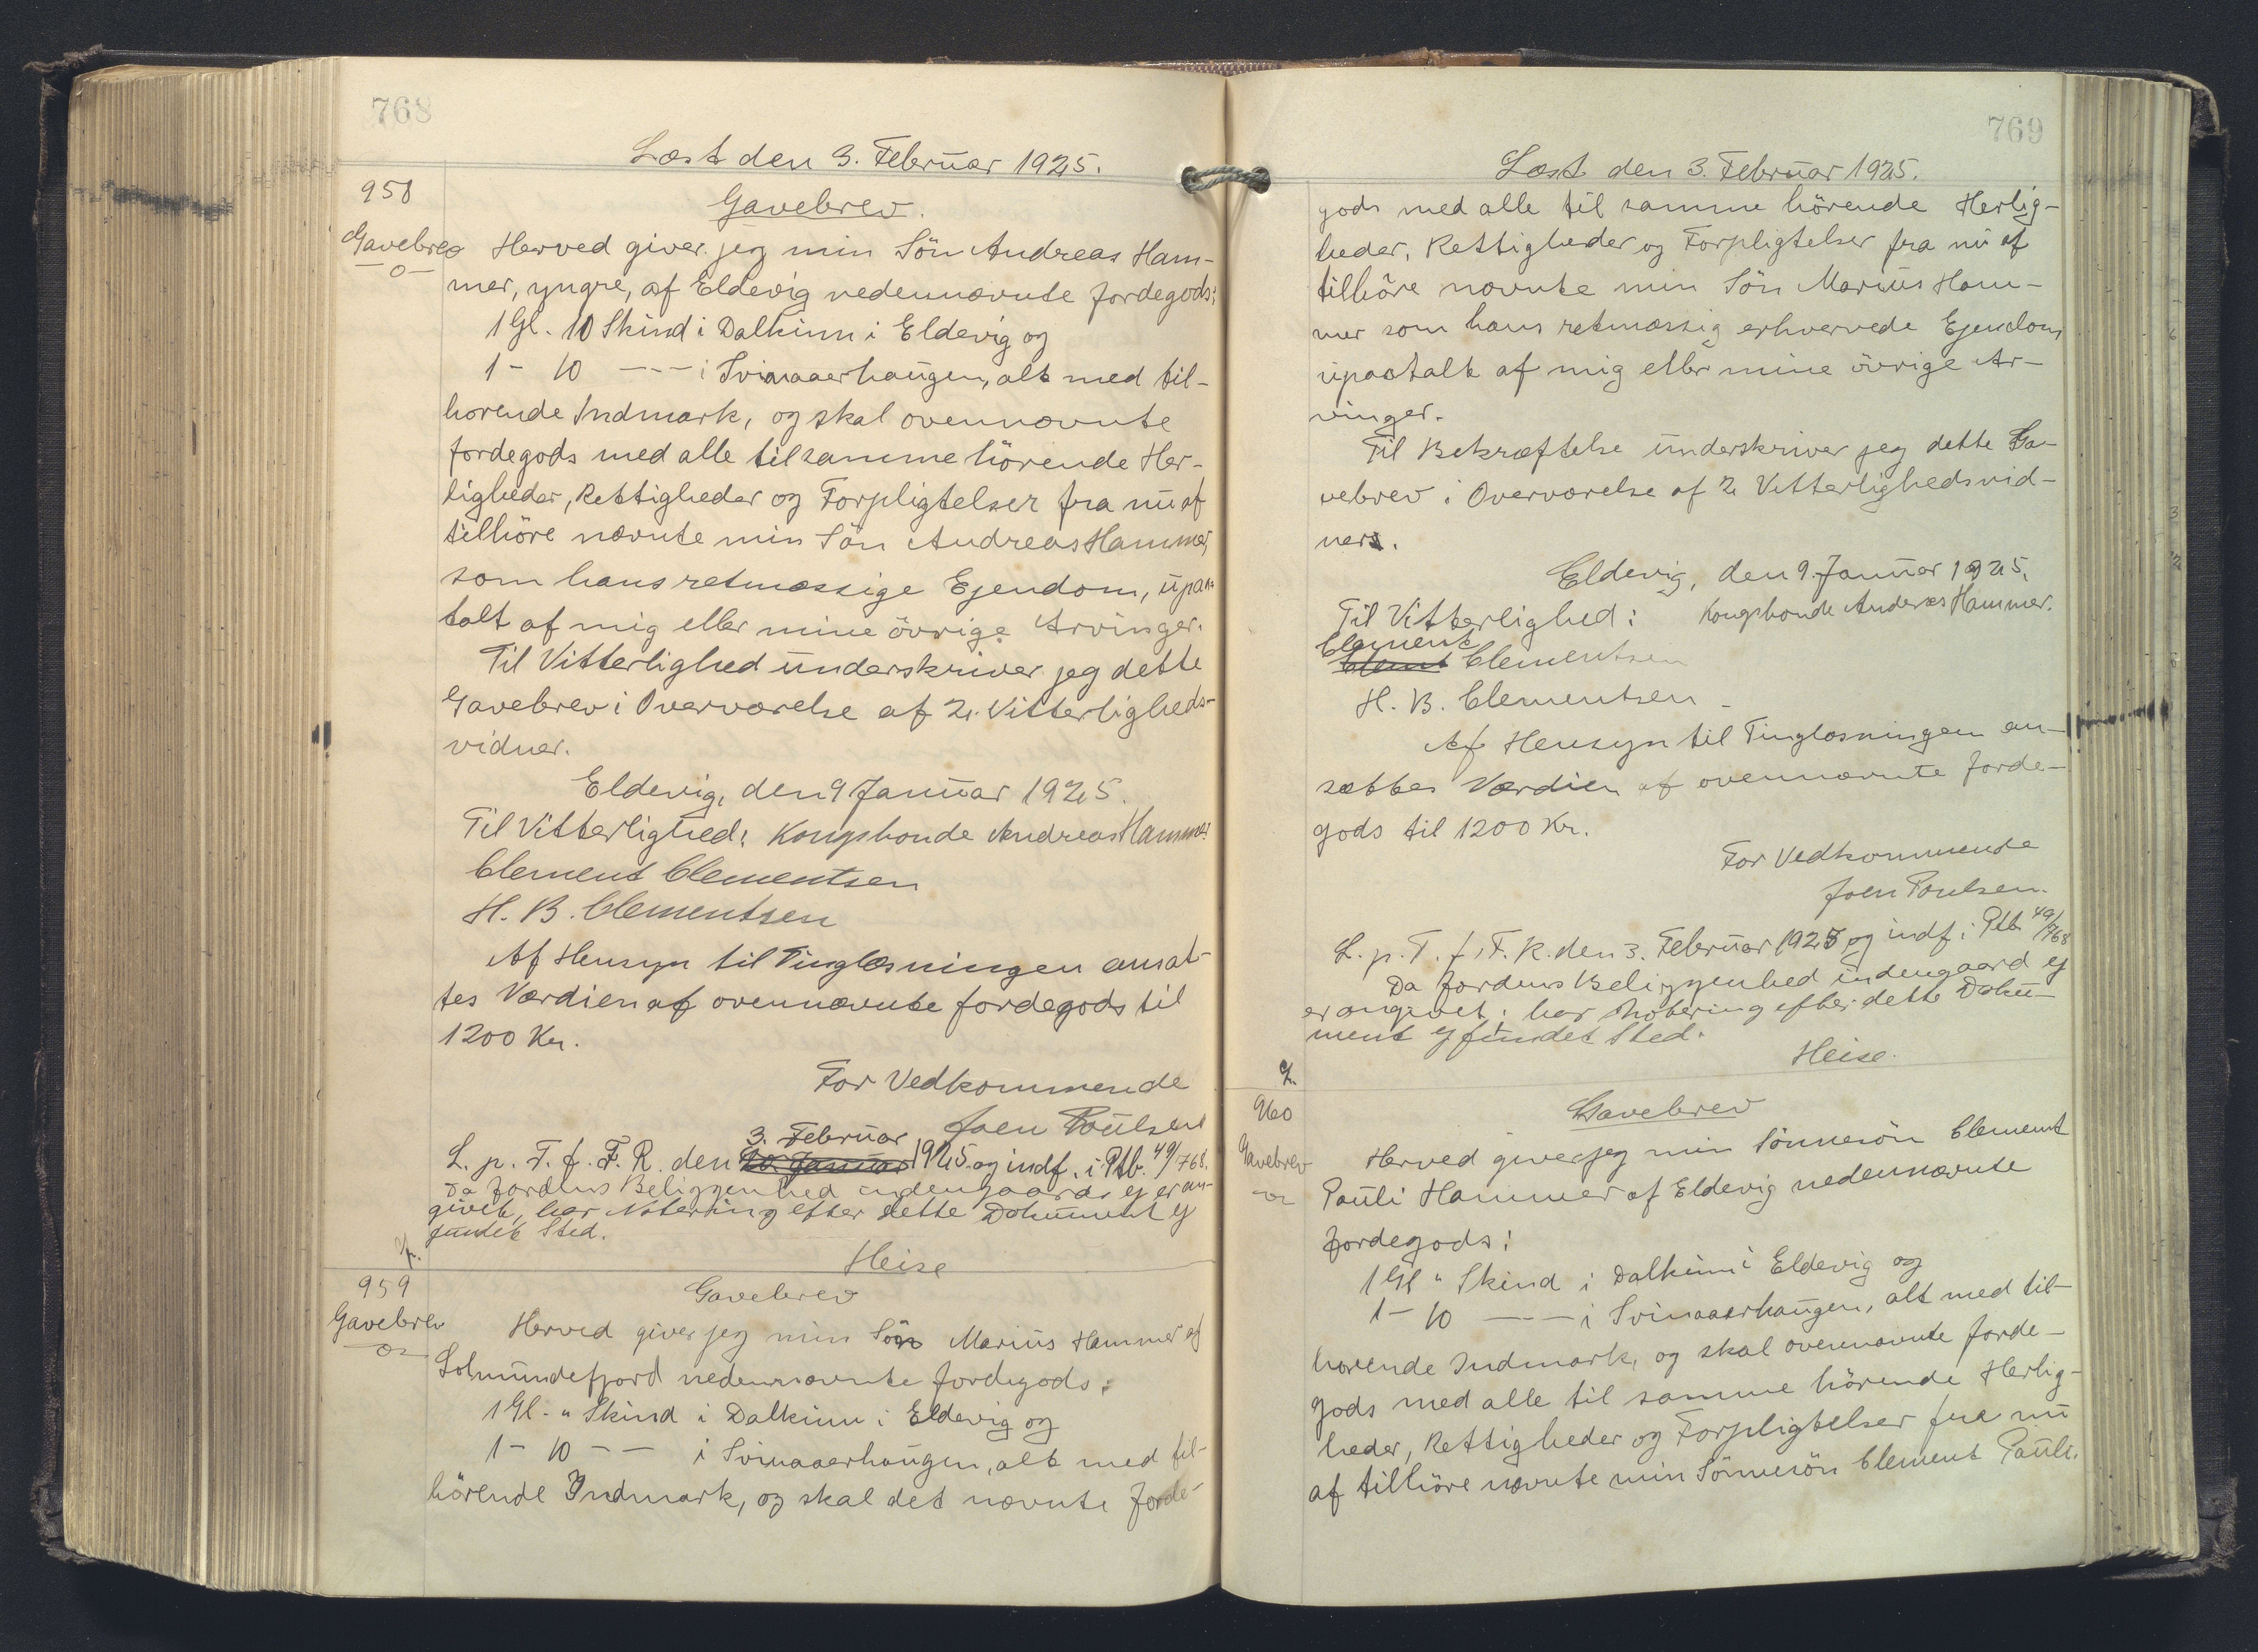 768
Læst den 3. Februar 1925.
958
Gavebrev
Gavebrev.
Herved giver jeg min Sön Andreas Ham-
mer, yngre, af Eldevig nedennævnte Jordegods:
1 Gl. 10 Skind i Dalkinn i Eldevig og
1 - 10 --- i Svinaaerhaugen, alt med til-
hörende Indmark, og skal ovennævnte
Jordegods med alle til samme hörende Her-
ligheder, Rettigheder og Forpligtelser fra nu af
tilhöre nævnte min Sön Andreas Hammer
som hans retmæssige Ejendom, upaa-
talt af mig eller mine övrige Arvinger.
Til Vitterlighed underskriver jeg dette
Gavebrev i Overværelse af 2. Vitterligheds-
vidner.
Eldevig, den 9 Januar 1925.
Til Vitterlighed: Kongsbonde Andreas Hammer
Clement Clementsen
H. B. Clementsen
Af Hensyn til Tinglæsningen ansæt-
tes Værdien af ovennævnte Jordegods til
1200 Kr.
For Vedkommende
Joen Poulsen
3. Februar
L. p. T. f. F. R. den 20. Januar 1925 og indf. i Ptb. 49/768.
Da Jordens Beliggenhed indengaards ej er an-
givet, har Notering efter dette Dokument ej
fundet Sted.
Heise
959
Gavebrev
Gavebrev
Herved giver jeg min Sön Marius Hammer af
Solmundefjord nedennævnte Jordegods:
1 Gl. " Skind i Dalkinn i Eldevig og
1 - 10 - - i Svinaaerhaugen, alt med til-
hörende Indmark, og skal det nævnte Jorde-
769
Læst den 3. Februar 1925.
gods med alle til samme hörende Herlig-
heder, Rettigheder og Forpligtelser fra nu af
tilhöre nævnte min Sön Marius Ham-
mer som hans retmæssig erhvervede Ejendom
upaatalt af mig eller mine övrige Ar-
vinger.
Til Bekræftelse underskriver jeg dette Ga-
vebrev i Overværelse af 2 Vitterlighedsvid-
ners.
Eldevig, den 9. Januar 1925.
Til Vitterlighed: Kongsbonde Anderas Hammer.
Clement
Clemt Clementsen
H. B. Clementsen
Af Hensyn til Tinglæsningen an-
sættes Værdien af ovennævnte Jorde-
gods til 1200 Kr.
For Vedkommende
Joen Poulsen.
L. p. T. f. F. R. den 3. Februar 1925 og indf. i Ptb 49/768
Da Jordens Beliggenhed indengaard ej
er angivet, har Notering efter dette Doku-
ment ej fundet Sted.
Heise.
960
Gavebrev
Gavebrev
Herved giver jeg min Sönnesön Clement
Pauli Hammer af Eldevig nedennævnte
Jordegods:
1 Gl " Skind i Dalkinn i Eldevig og
1 - 10 --- i Svinaaerhaugen, alt med til-
hørende Indmark, og skal ovennævnte Jorde-
gods med alle til samme hörende Herlig-
heder, Rettigheder og Forpligtelser fra nu
af tilhöre nævnte min Sönnesön Clement Pauli.